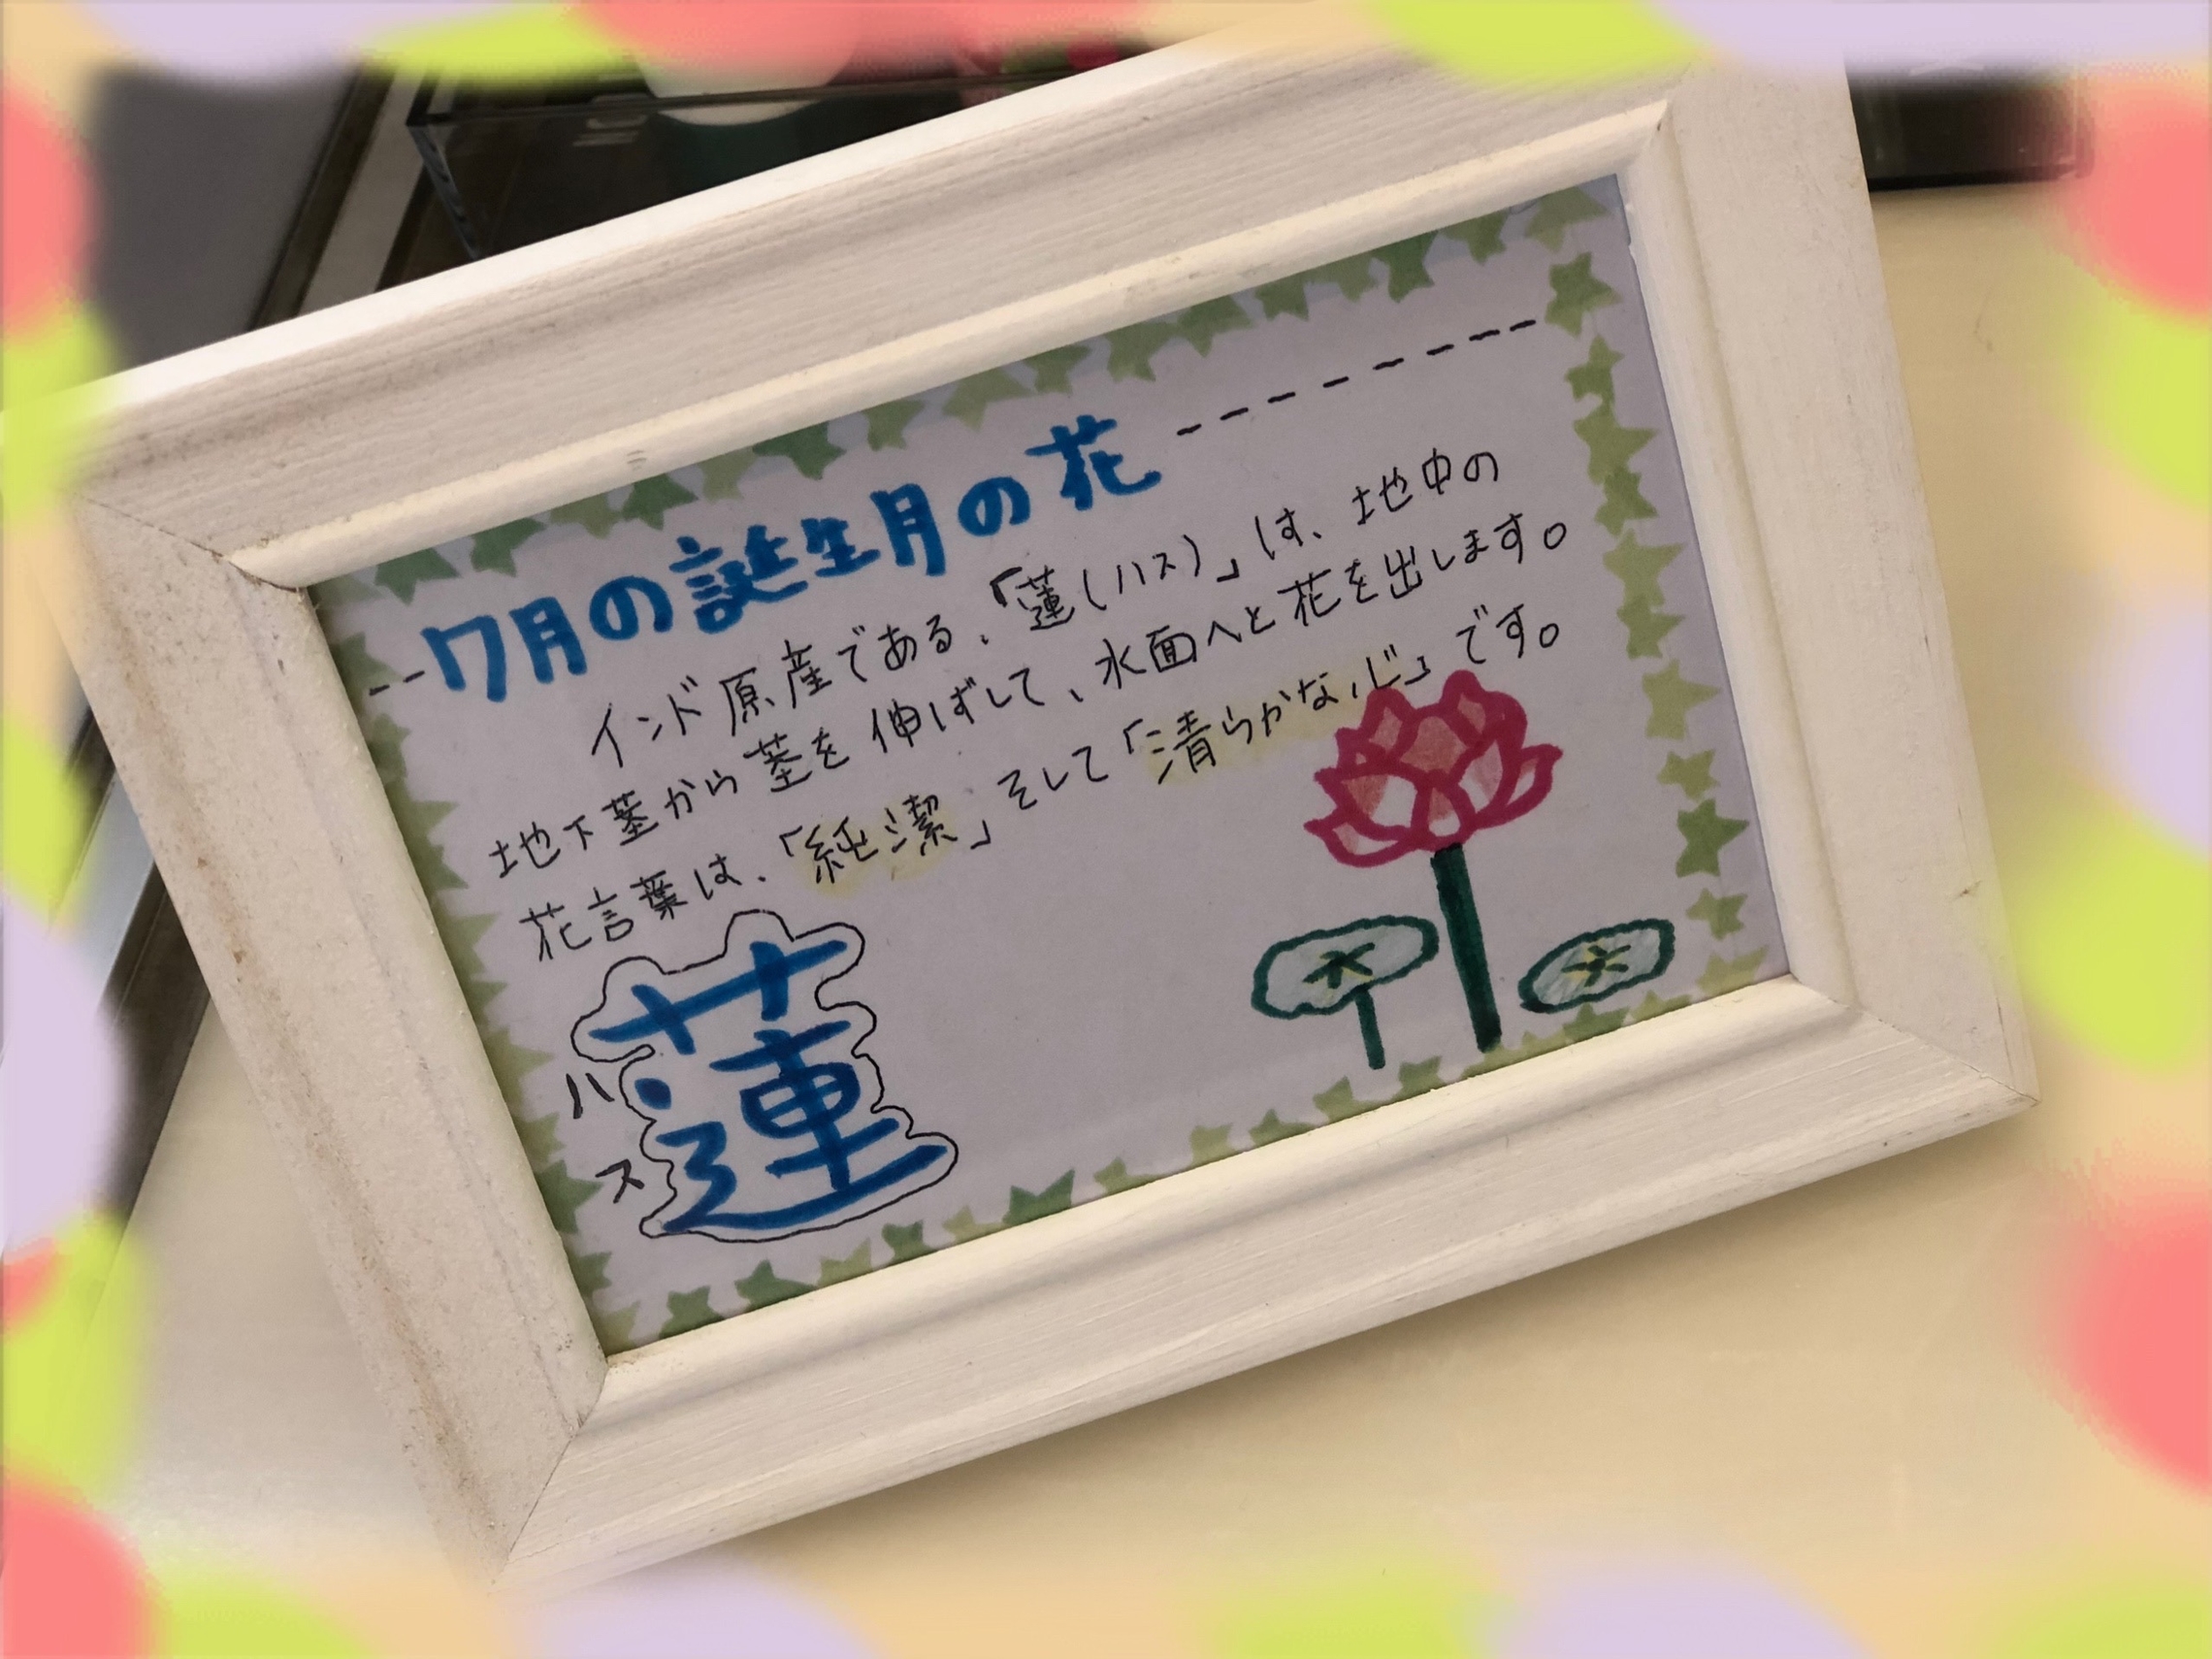 7月の誕生月の花
インド原産である、「蓮(ハス)」は、地中の
地下茎から茎を伸ばして、水面へと花を出します。
花言葉は、「純潔」そして「清らかな心」です。
蓮
ハス